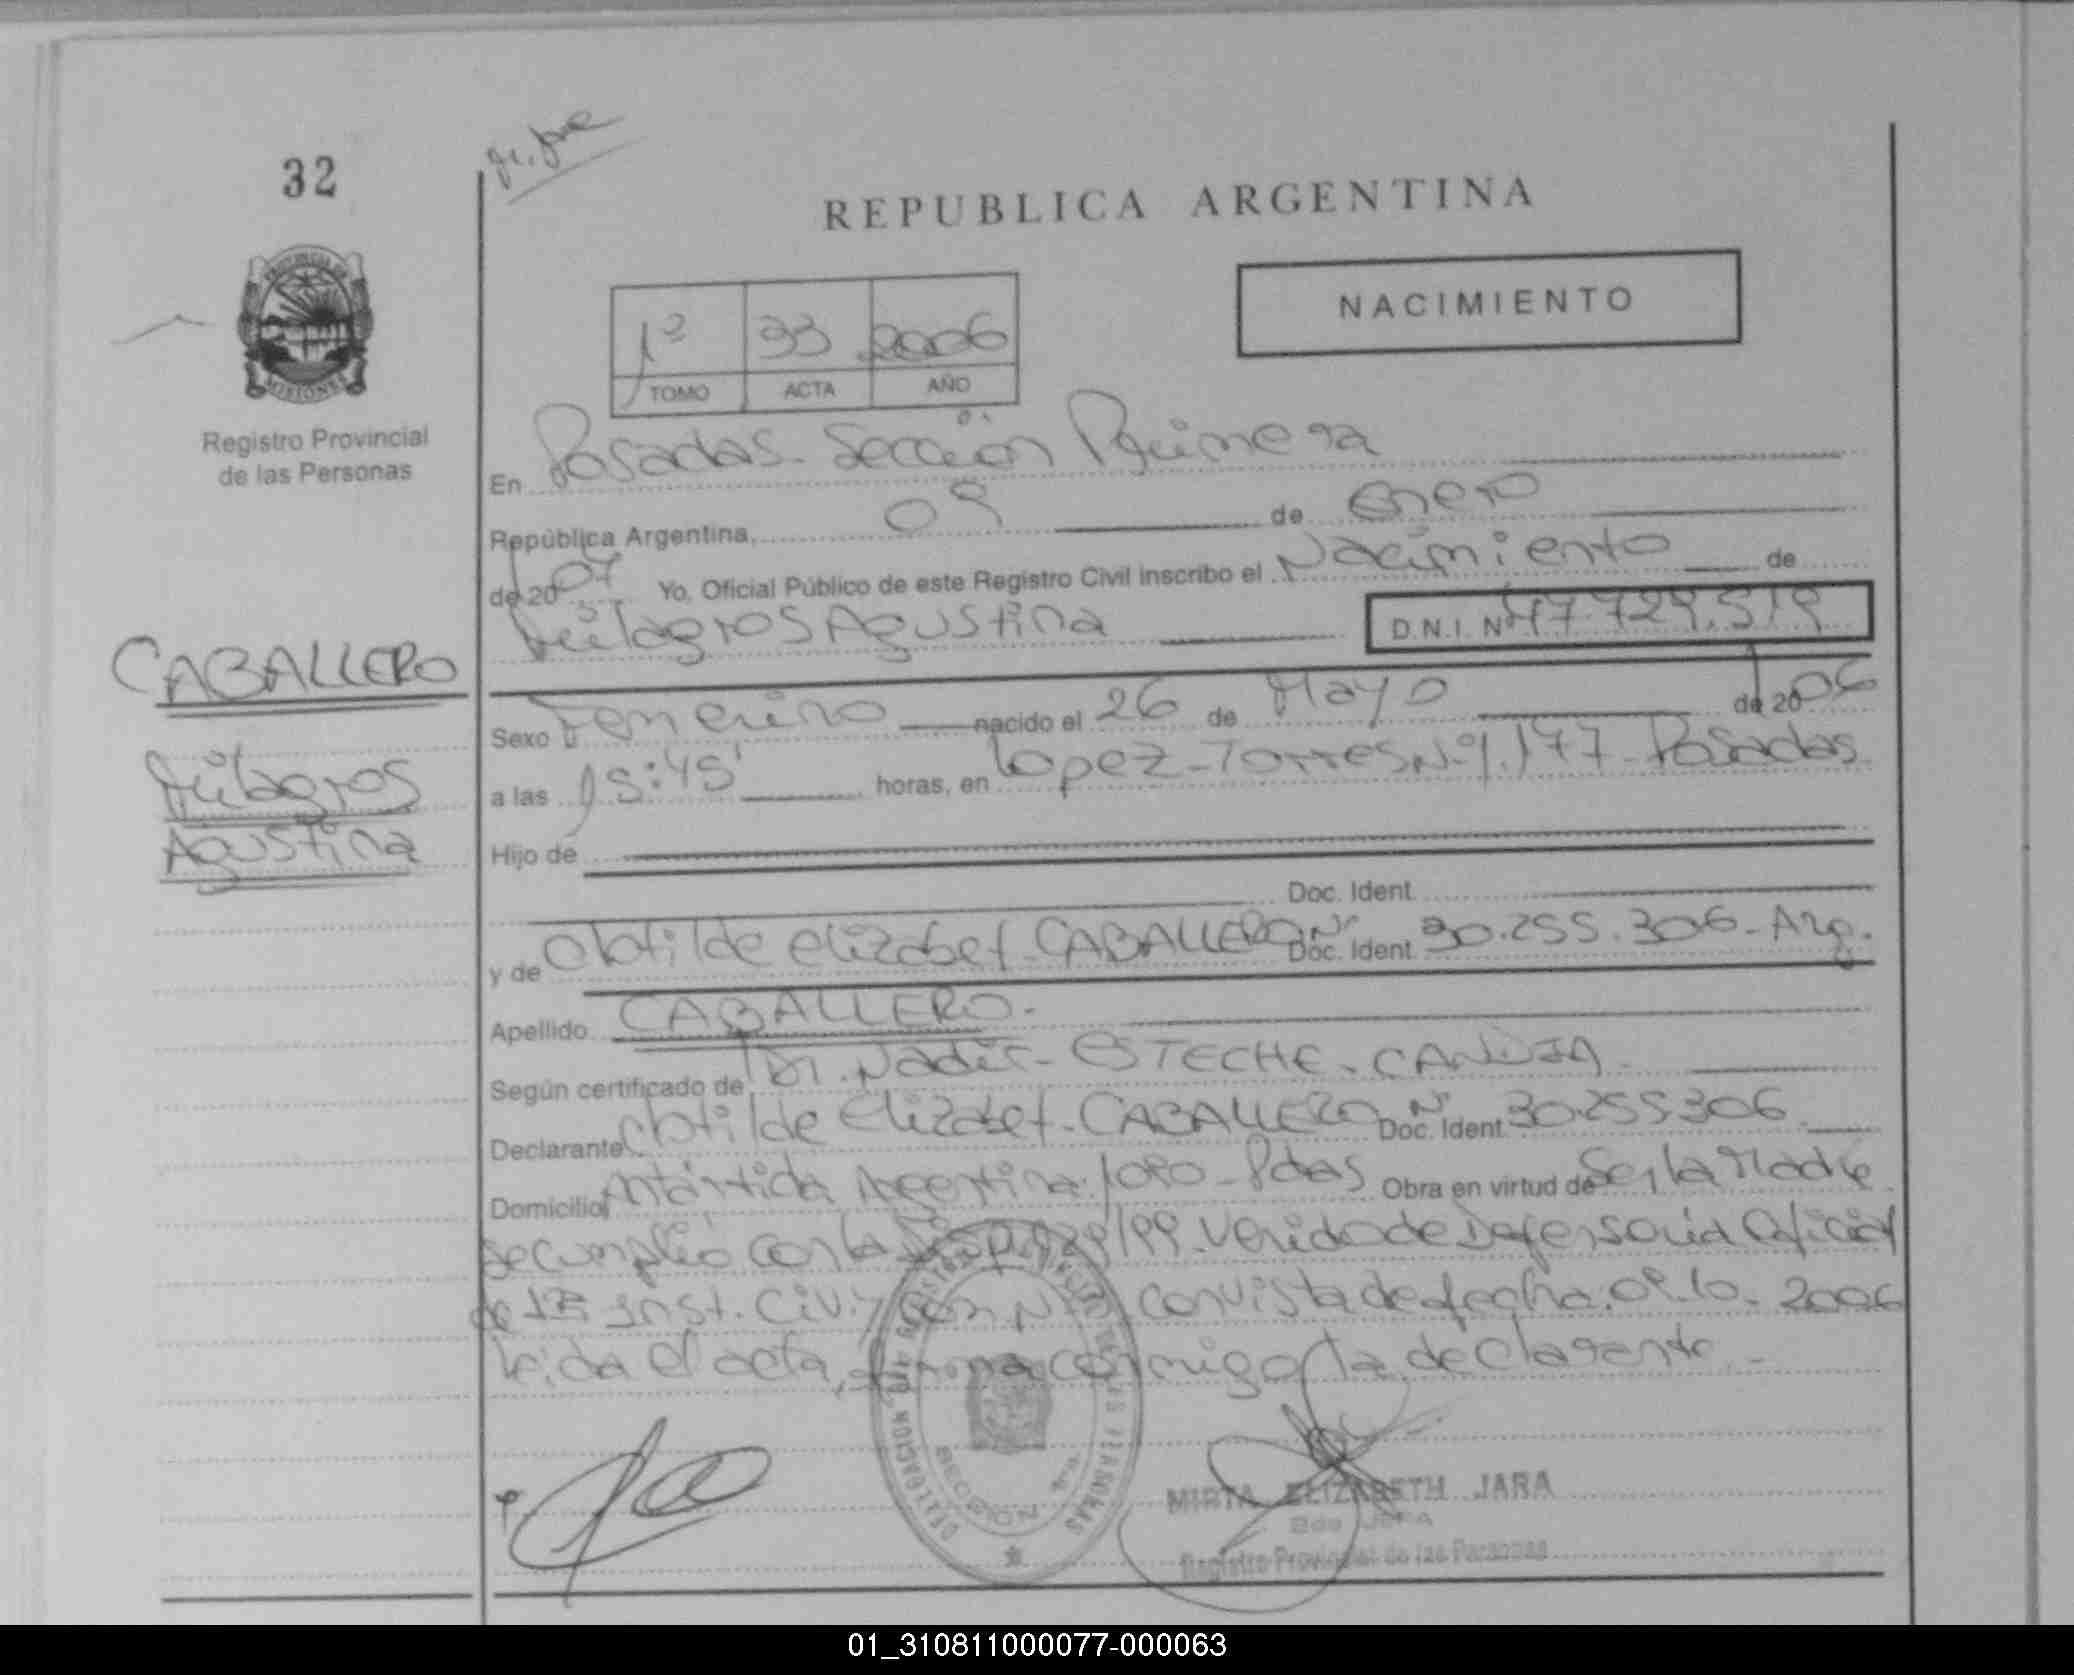 32
REPUBLICA ARGENTINA
NACIMIENTO
1º 33 2006
TOMO ACTA AÑO
PROVINCIA DE MISIONES
Registro Provincial
de las Personas
En Posadas - Sección Primera
República Argentina, 09 de Enero
de 2007 Yo, Oficial Público de este Registro Civil inscribo el Nacimiento de
Milagros Agustina D.N.I. Nº 47.729.519
CABALLERO
Milagros
Agustina
Sexo Femenino nacido el 26 de Mayo de 2006
a las 15:45' horas, en Lopez - Torres Nº 1.177 - Posadas
Hijo de
Doc. Ident.
y de Clotilde Elizabet - CABALLERO Doc. Ident. Nº 30.255.306 - Arg.
Apellido CABALLERO.-
Según certificado de Dr. Nadir - ESTECHE - CANDIA.
Declarante Clotilde Elizabet - CABALLERO Doc. Ident. Nº 30.255.306
Domicilio Antártida Argentina 1080 - Pdas Obra en virtud de Ser la Madre
Se cumplió con la Disp. /99. Venido de Defensoria Oficial
de 1ra Inst. Civ. y Com Nº con vista de fecha. 09.10.2006
leida el acta, firma conmigo la declarante.-
DELEGACION DEL REGISTRO PROVINCIAL DE LAS PERSONAS
SECCION 1ra.
MIRTA ELIZABETH JARA
2da JEFA
Registro Provincial de las Personas
01_310811000077-000063